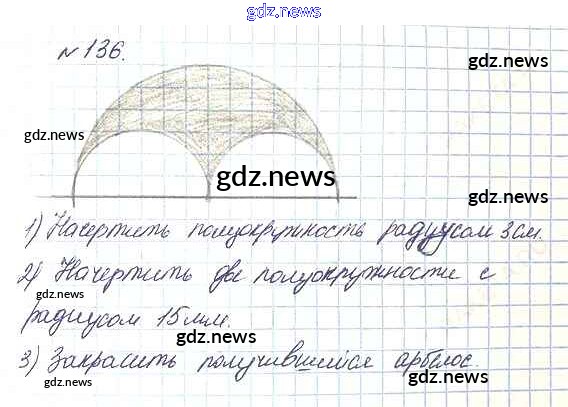 gdz.news
№ 136.
gdz.news
gdz.news
gdz.news
gdz.news
1) Начертить полуокружность радиусом 3см.
2) Начертить две полуокружности с
gdz.news
радиусом 15мм.
gdz.news
3) Закрасить получившийся арбелос.
gdz.news
gdz.news